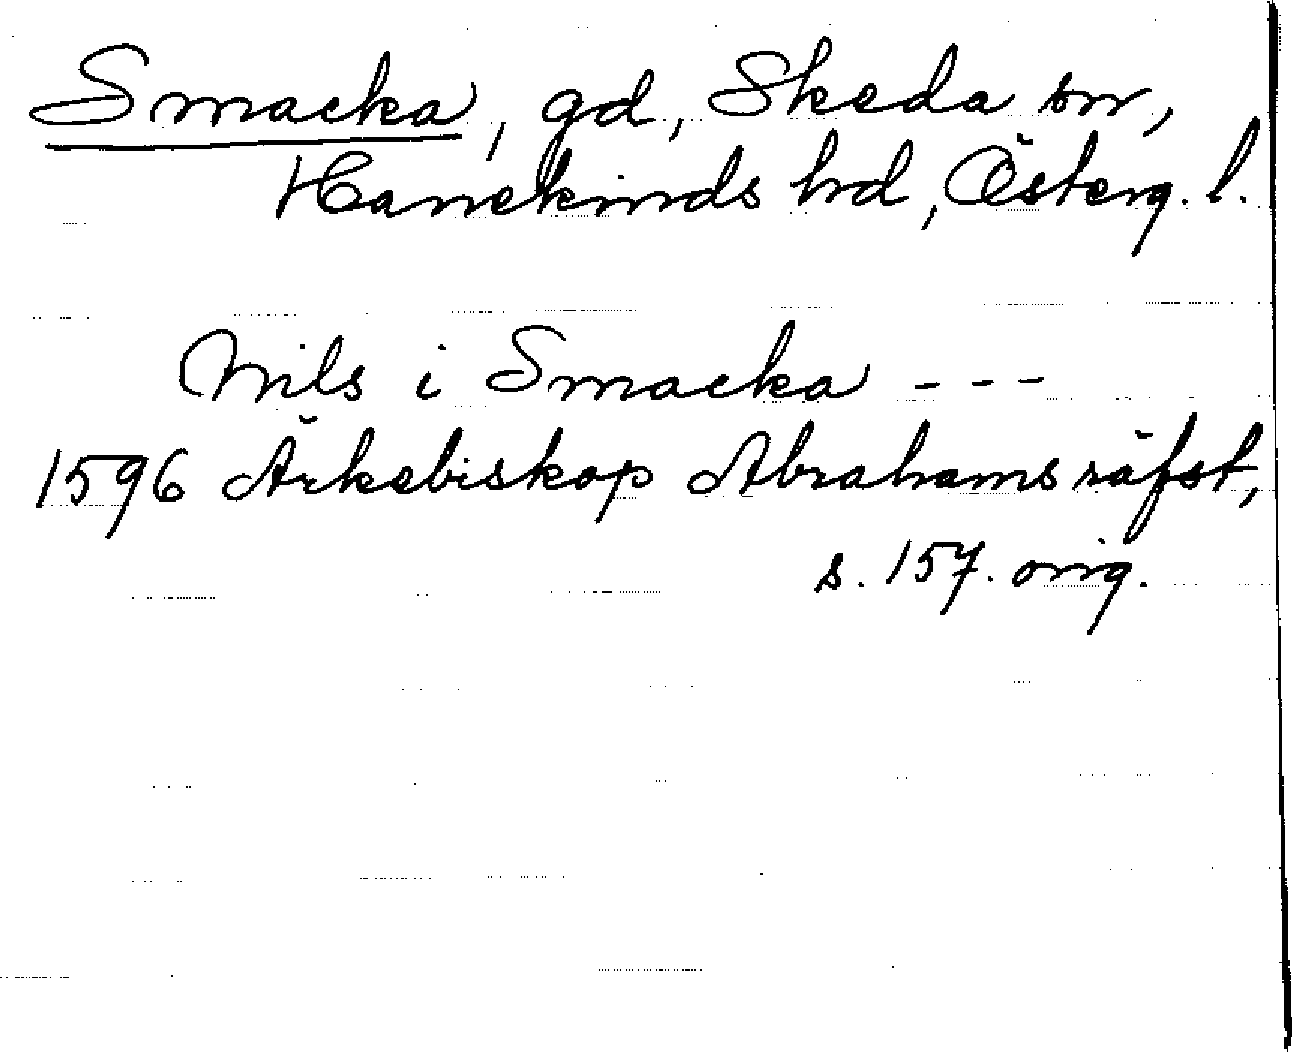 Smacka, gd, Skeda sn,
Hanekinds hd, Österg. l.
Nils i Smacka - - -
1596 Ärkebiskop Abrahams räfst,
s. 157. orig.